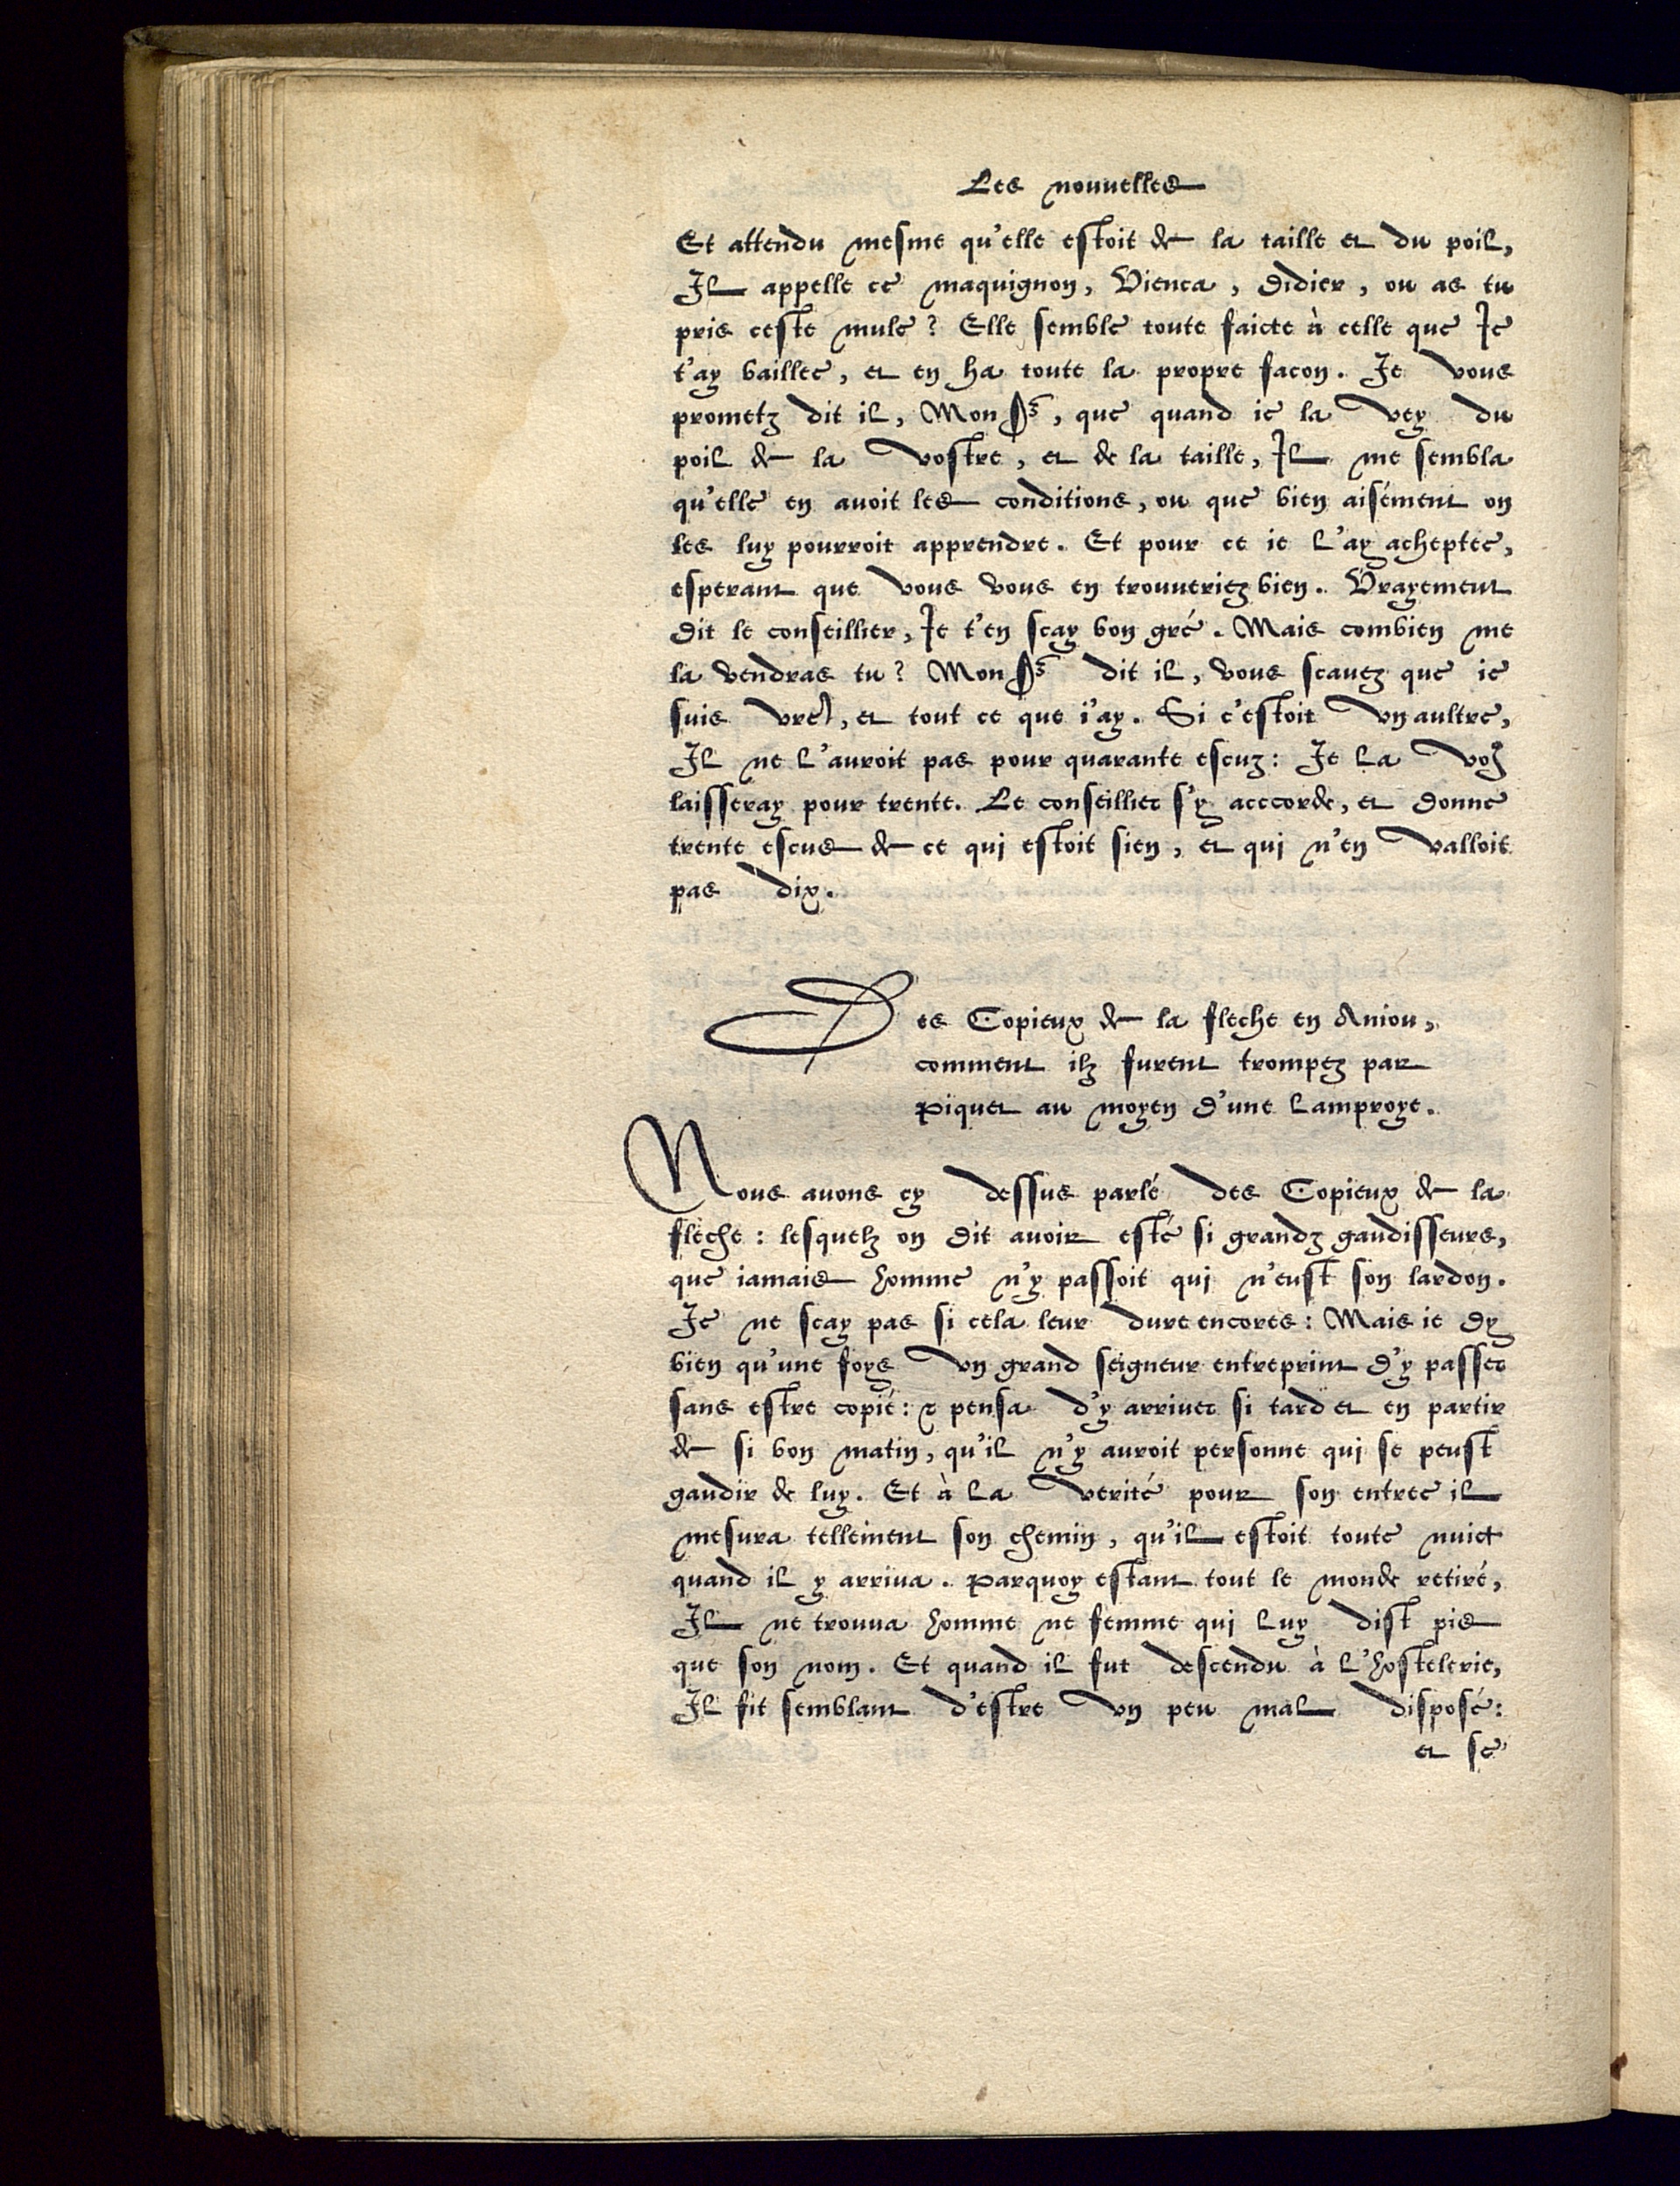 Les nouuelles
Et attendu mesme qu'elle estoit de la taille et du poil,
Il appelle ce maquignon, Vienca, Didier, ou as tu
pris ceste mule? Elle semble toute faicte à celle que Ie
t'ay baillee, et en ha toute la propre facon. Ie vous
prometz dit il, Mon Sr, que quand ie la vey du
poil de la vostre, et de la taille, Il me sembla
qu'elle en auoit les conditions, ou que bien aisément on
les luy pourroit apprendre. Et pour ce ie l'ay acheptee,
esperant que vous vous en trouueriez bien. Vrayement
dit le conseillier, Ie t'en scay bon gré. Mais combien me
la vendras tu? Mon Sr dit il, vous scauez que ie
suis vre, et tout ce que i'ay. Si c'estoit vn aultre,
Il ne l'auroit pas pour quarante escuz: Ie la vo9
laisseray pour trente. Le conseillier s'y acccorde, et donne
trente escus de ce qui estoit sien, et qui n'en valloit
pas dix.
Des Copieux de la fleche en Aniou,
comment ilz furent trompez par
Piquet au moyen d'une Lamproye.
Nous auons cy dessus parlé des Copieux de la
fleche: lesquelz on dit auoir esté si grandz gaudisseurs,
que iamais homme n'y passoit qui n'eust son lardon.
Ie ne scay pas si cela leur dure encores: Mais ie dy
bien qu'une foys vn grand seigneur entreprint d'y passer
sans estre copié: & pensa d'y arriuer si tard et en partir
de si bon matin, qu'il n'y auroit personne qui se peust
gaudir de luy. Et à la verité pour son entree il
mesura tellement son chemin, qu'il estoit toute nuict
quand il y arriua. Parquoy estant tout le monde retiré,
Il ne trouua homme ne femme qui luy dist pis
que son nom. Et quand il fut descendu à l'hostelerie,
Il fit semblant d'estre vn peu mal disposé:
et se